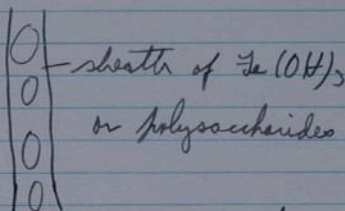 sheath of Fe(OH)₃
or polysaccharides